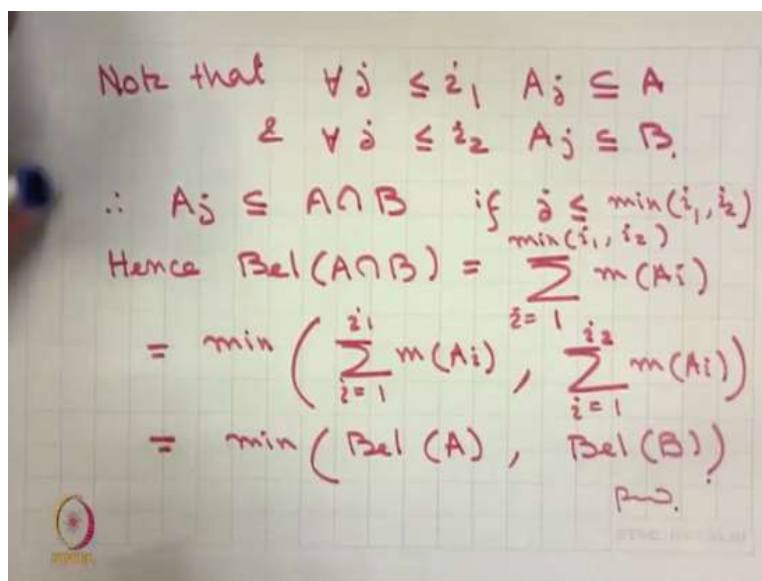 Note that ∀ j ≤ i₁ Aj ⊆ A
& ∀ j ≤ i₂ Aj ⊆ B.
∴ Aj ⊆ A∩B if j ≤ min(i₁, i₂)
Hence Bel(A∩B) = ∑_{i=1}^{min(i₁, i₂)} m(Ai)
= min(∑_{i=1}^{i1} m(Ai), ∑_{i=1}^{i2} m(Ai))
= min(Bel(A), Bel(B))